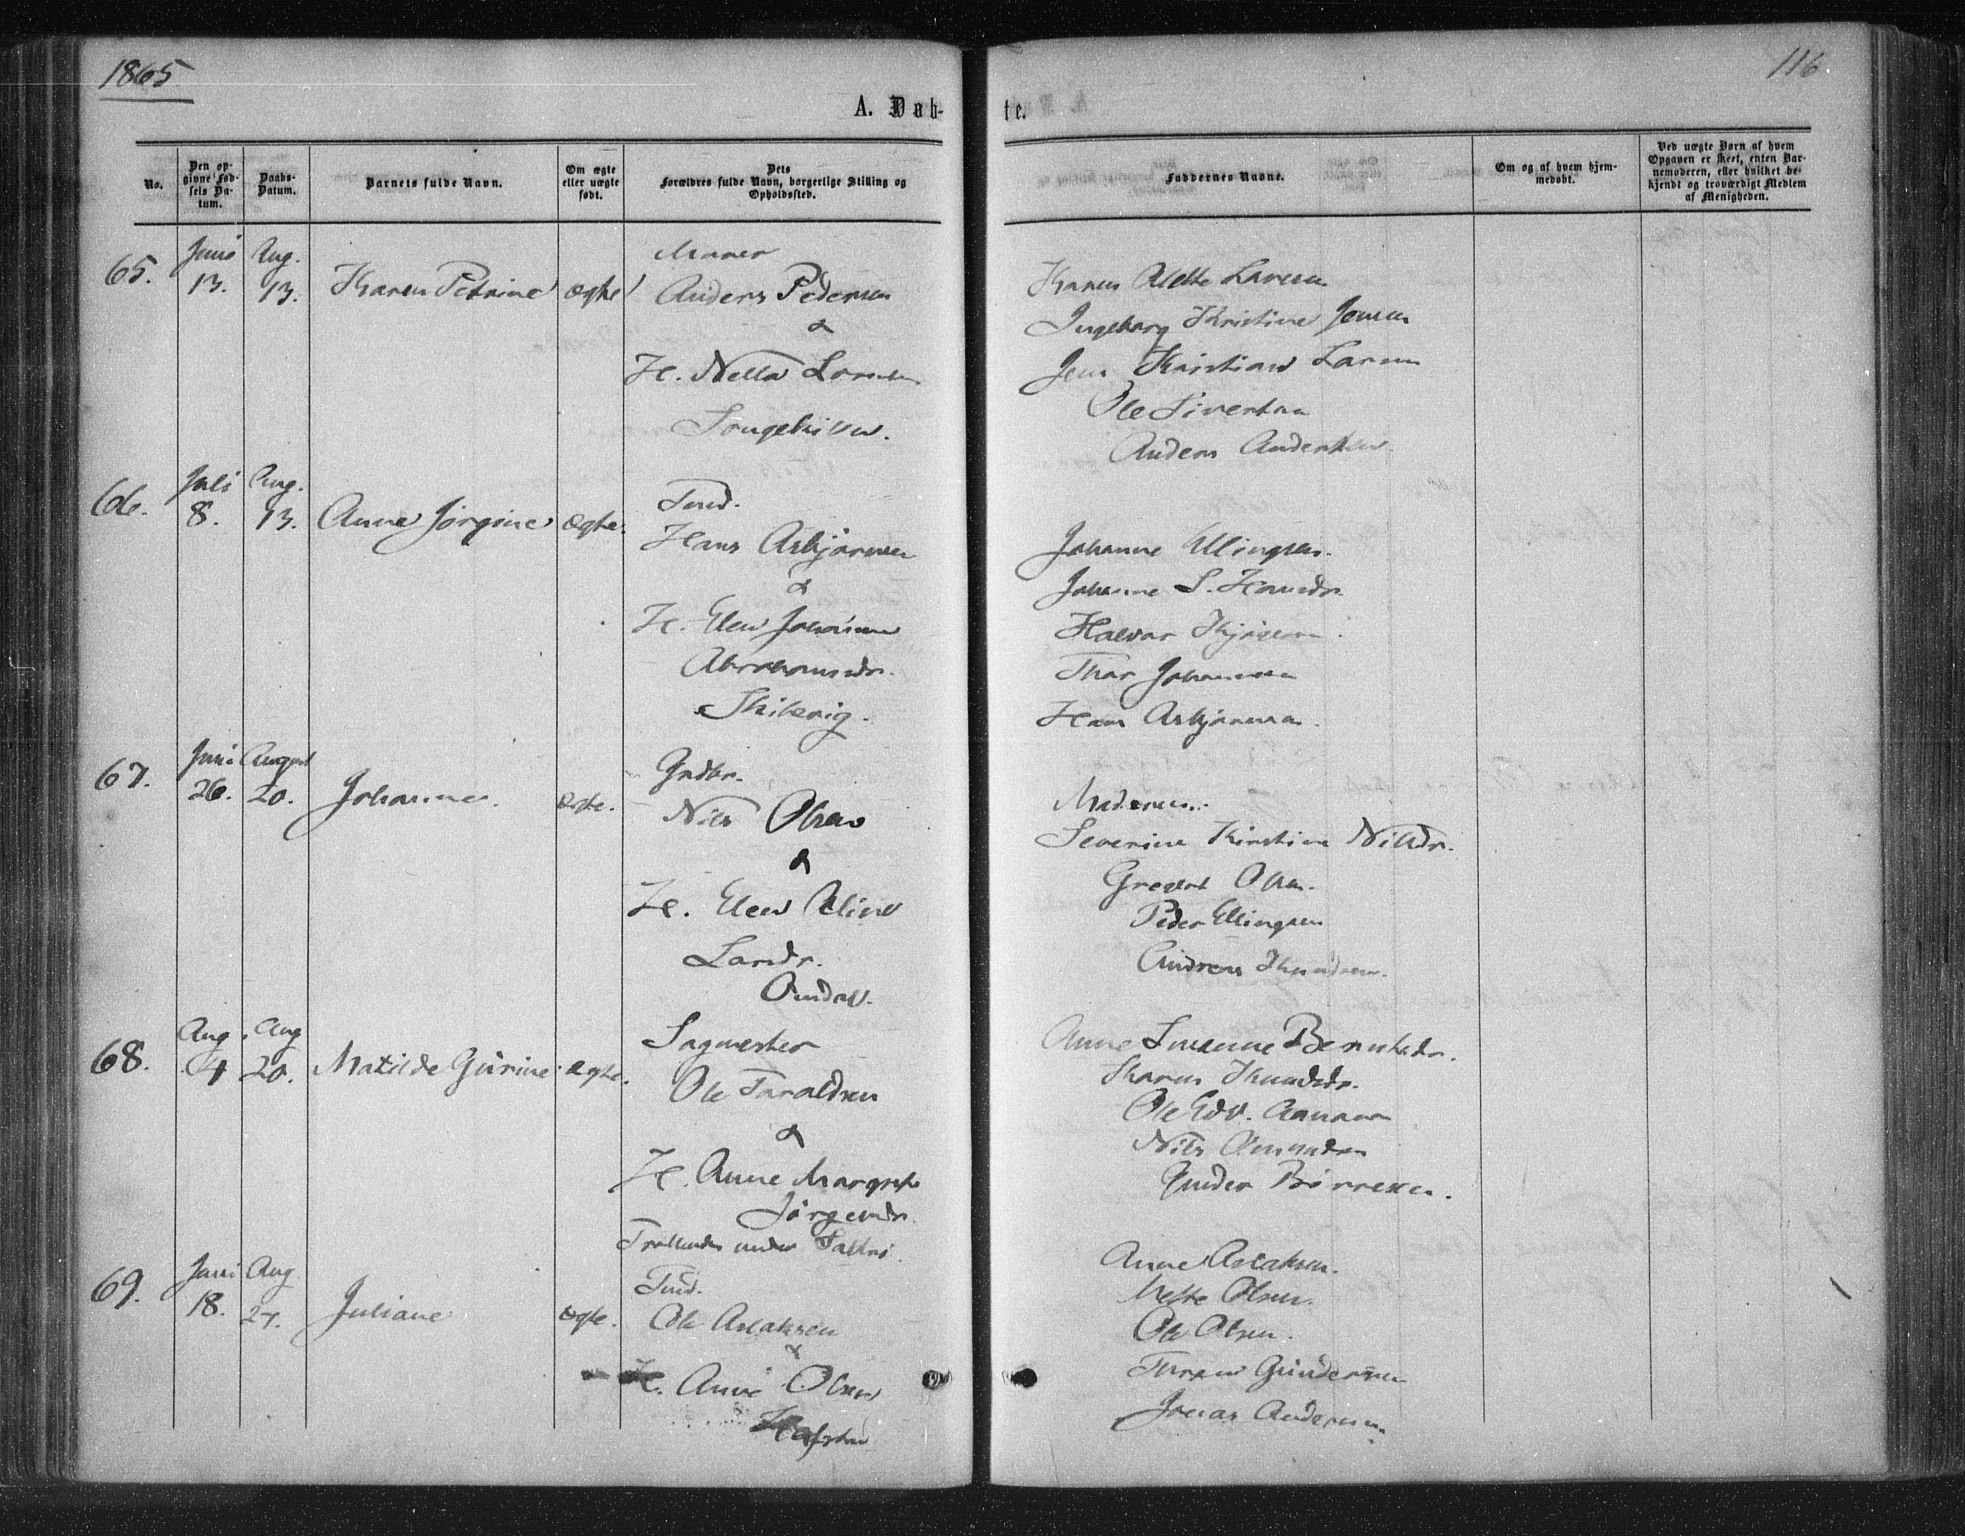 1865
116
A. Døb-
te.
No.
Den op-
givne Fød-
sels Da-
tum.
Daabs-
Datum.
Barnets fulde Navn.
Om ægte
eller uægte
født.
Dets
Forældres fulde Navn, borgerlige Stilling og
Opholdssted.
Faddernes Navne.
Om og af hvem hjem-
medøbt.
Ved uægte Børn af hvem
Opgaven er skeet, enten Bar-
nemoderen, eller hvilket be-
kjendt og troværdigt Medlem
af Menigheden.
65.
Juni
13.
Aug.
13.
Karen Petrine
ægte
Anders Pedersen
&
H.
Karen
Larsen
Ingeborg Kristine Jensen
Jens Kristian Larsen
Ole Sivertsen
Anders Andersen
66.
Juli
8.
Aug.
13.
Anne Jørgine
ægte.
Hans Asbjørnsen
&
H. Elen
Abrahamsdr.
Johanne Ellingsen.
Johanne S. Hansdr.
Halvor
Thor Johannesen
Hans Asbjørnsen.
67.
Juni
26.
August
20.
Johanne.
ægte.
Grdbr.
Nils Olsen
&
H. Elen
Larsdr.
Omdal.
Moderen.
Severine Kirstine Nilsdr.
Olsen.
Peder Ellingsen
Knudsen.
68.
Aug
4
Aug
20.
Matilde Gurine
ægte.
Sagmester
Ole Taraldsen
&
H. Anne Margrete
Jørgensdr.
under
Anne Susanne
Karen Knudsdr.
Ole Edv. Aanonsen
Nils Omundsen
Gunder Børresen.
69.
Juni
18.
Aug
27.
Juliane
ægte.
Ole Aslaksen
&
H. Anne Olsen
Anne Aslaksen.
Mette Olsen.
Ole Olsen.
Gundersen
Jonas Andersen.